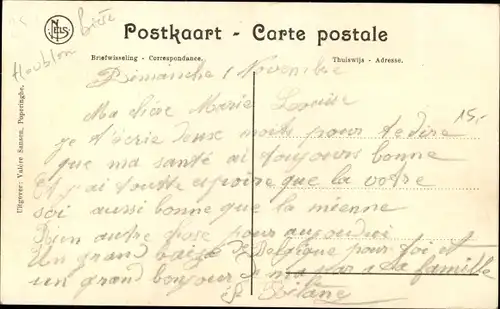 Bière
Houblon
Postkaart - Carte postale
Briefwisseling - Correspondance.
Thuiswijs - Adresse.
Dimanche 1 Novembre
15,-
Ma chère Marie Louise
je t'écrie deux mots pour te dire
que ma santé ai toujours bonne
Et j'ai toutte espoire que la votre
soi aussi bonne que la mienne
Bien autre pose pour aujourdui
un grand baizé de Belgique pour toi et
un grand bonjour a la famille
Uitgever: Valère Sansen, Poperinghe.